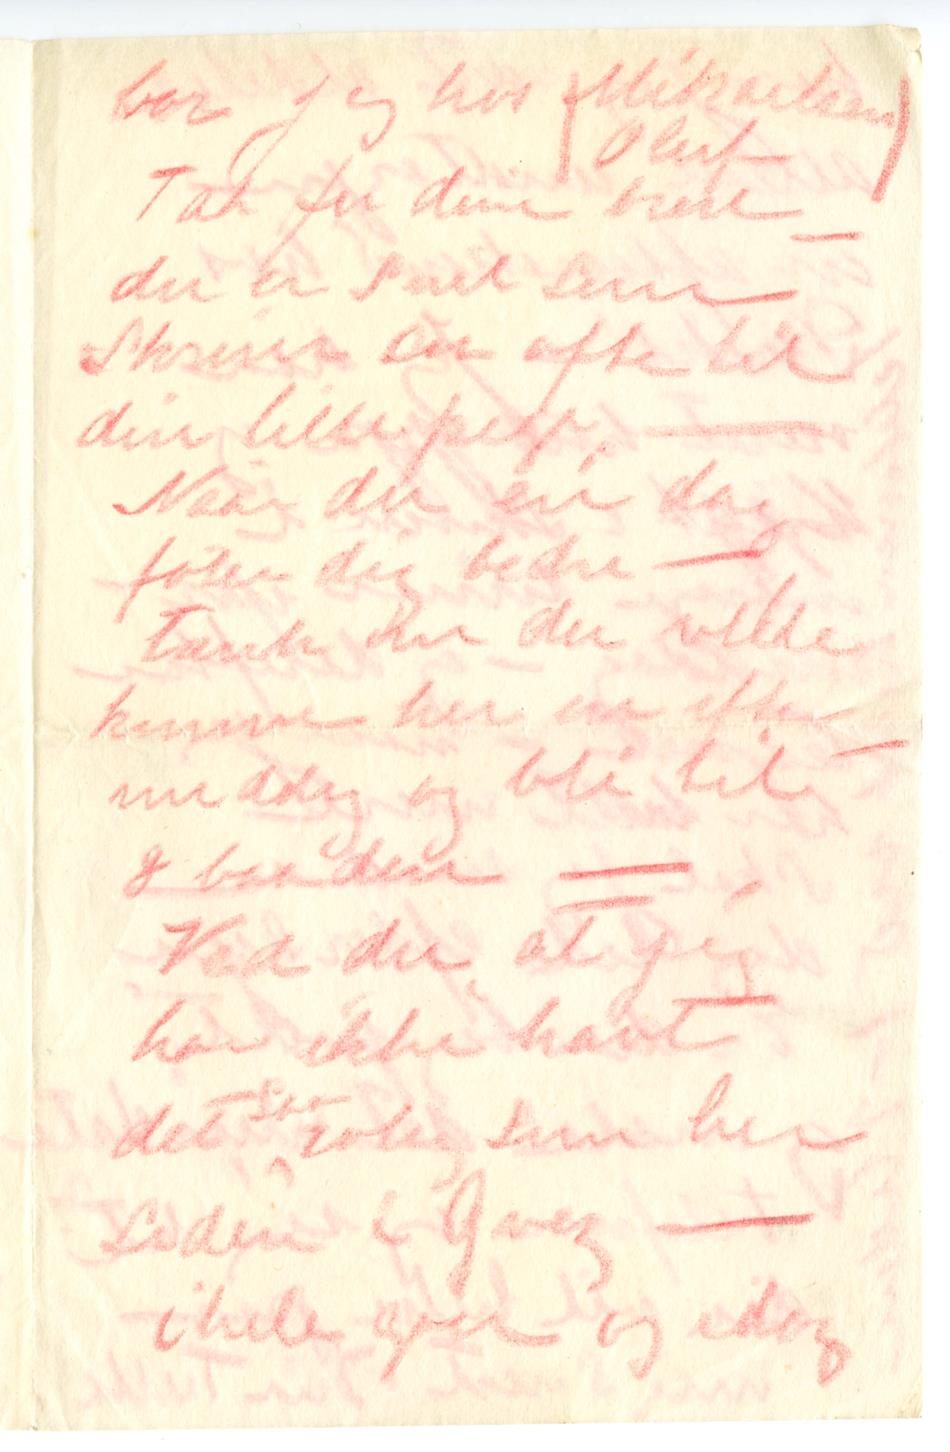 bor jeg hos (Mikaelsen)
Oluf
Tak for dine brev —
du er snil som
skriver saa ofte til
din lille pesf. —
Naar du en dag
føler dig bedre —
Tænk om du vilde
komme her en efter—
middag og bli til
g baaden =
Ved du, at jeg
har ikke havt
det saa rolig som her
siden i Gvag —
ihele gaar og idag